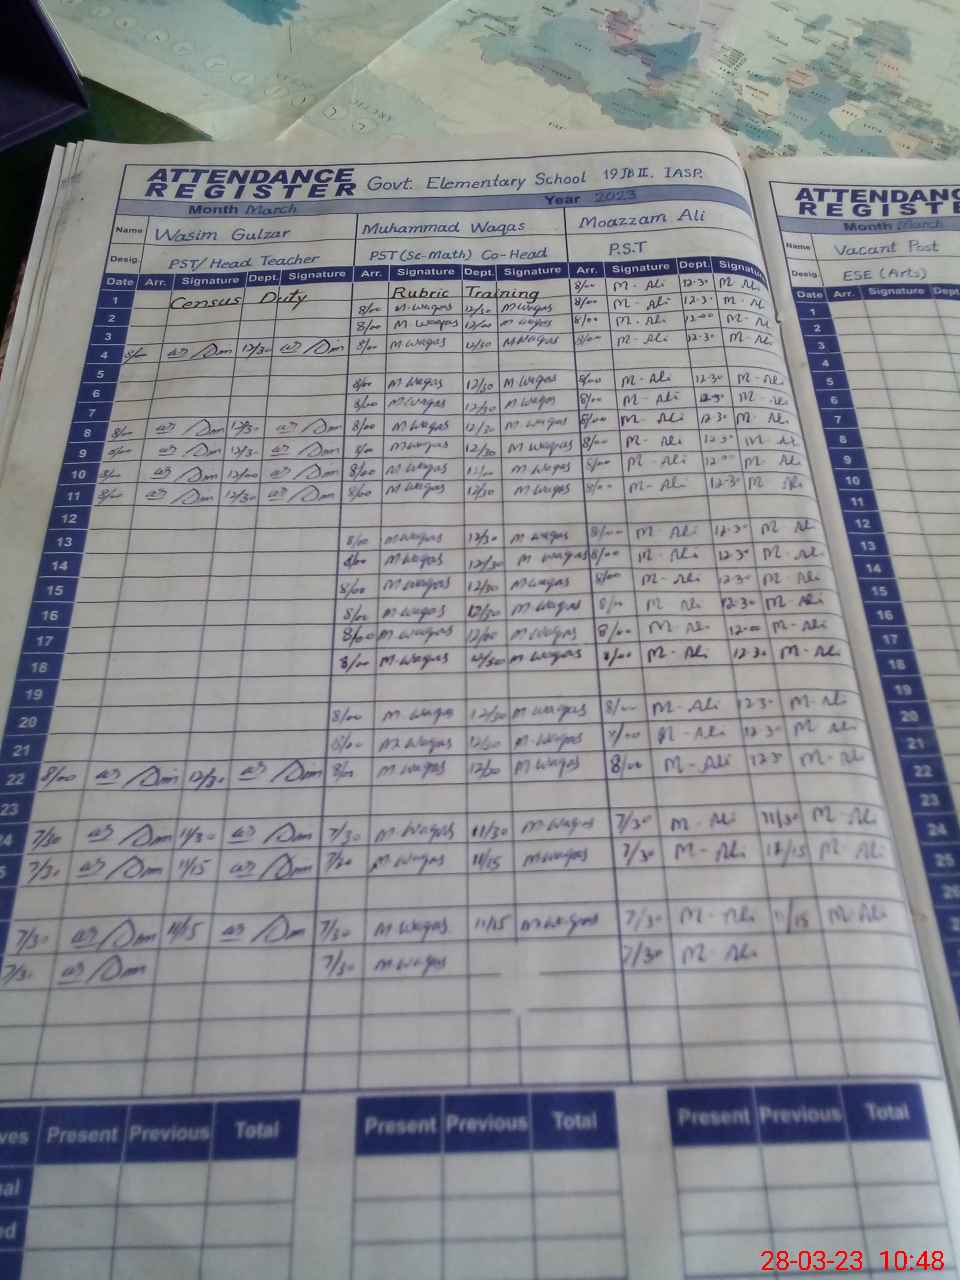 ATTENDANCE REGISTER Govt. Elementary School 19JB II. IASP.
Month March Year 2023
Name Wasim Gulzar Muhammad Waqas Moazzam Ali
Desig. PST/Head Teacher PST(Sc-Math) Co-Head P.S.T
Date Arr. Signature Dept. Signature Arr. Signature Dept. Signature Arr. Signature Dept. Signature
1 Census Duty Rubric Training 8/00 M-Ali 12-30 M-Ali
2 8/00 M-waqas 12/30 M waqas 8/00 M-Ali 12-30 M-Ali
3 8/00 M waqas 12/00 M waqas 8/00 M-Ali 12-00 M-Ali
4 8/00 12/30 8/00 M waqas 12/30 M waqas 8/00 M-Ali 12-30 M-Ali
5
6 8/00 M waqas 12/30 M waqas 8/00 M-Ali 12-30 M-Ali
7 8/00 M waqas 12/30 M waqas 8/00 M-Ali 12-30 M-Ali
8 8/00 12/30 8/00 M waqas 12/30 M waqas 8/00 M-Ali 12-30 M-Ali
9 8/00 12/30 8/00 M waqas 12/30 M waqas 8/00 M-Ali 12-30 M-Ali
10 8/00 12/00 8/00 M waqas M waqas 8/00 M-Ali 12-00 M-Ali
11 8/00 12/30 8/00 M waqas 12/30 M waqas 8/00 M-Ali 12-30 M-Ali
12
13 8/00 M waqas 12/30 M waqas 8/00 M-Ali 12-30 M-Ali
14 8/00 M waqas 12/30 M waqas 8/00 M-Ali 12-30 M-Ali
15 8/00 M waqas 12/30 M waqas 8/00 M-Ali 12-30 M-Ali
16 8/00 M waqas 12/30 M waqas 8/00 M Ali 12-30 M-Ali
17 8/00 M waqas 12/00 M waqas 8/00 M-Ali 12-00 M-Ali
18 8/00 M-waqas 12/30 M waqas 8/00 M-Ali 12-30 M-Ali
19
20 8/00 M-waqas 12/30 M waqas 8/00 M-Ali 12-30 M-Ali
21 8/00 M waqas 12/30 M waqas 8/00 M-Ali 12-30 M-Ali
22 8/00 12/30 8/00 M waqas 12/30 M waqas 8/00 M-Ali 12-30 M-Ali
23
24 7/30 11/30 7/30 M-waqas 11/30 M waqas 7/30 M-Ali 11/30 M-Ali
7/30 11/15 7/30 M waqas 11/15 M waqas 7/30 M-Ali 11/15 M-Ali
7/30 11/15 7/30 M waqas 11/15 M waqas 7/30 M-Ali 11/15 M-Ali
7/30 7/30 M waqas 7/30 M-Ali
Present Previous Total Present Previous Total Present Previous Total
ATTENDANCE
REGISTE
Month March
Name Vacant Post
Desig. ESE (Arts)
Date Arr. Signature Dept
1
2
3
4
5
6
7
8
9
10
11
12
13
14
15
16
17
18
19
20
21
22
23
24
25
26
28-03-23 10:48